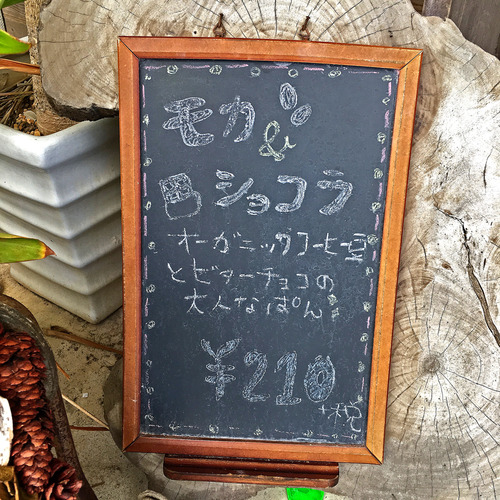 モカ&
ショコラ
オーガニックコーヒー豆
とビターチョコの
大人なぱん
¥210
+税